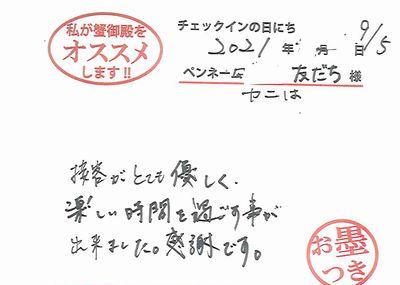 私が蟹御殿を
オススメ
します!!
チェックインの日にち
2021年 月 日 9/5
ペンネーム 友だち 様
カニは
接客がとても優しく、
楽しい時間を過ごす事が
出来ました。感謝です。
お墨
つき